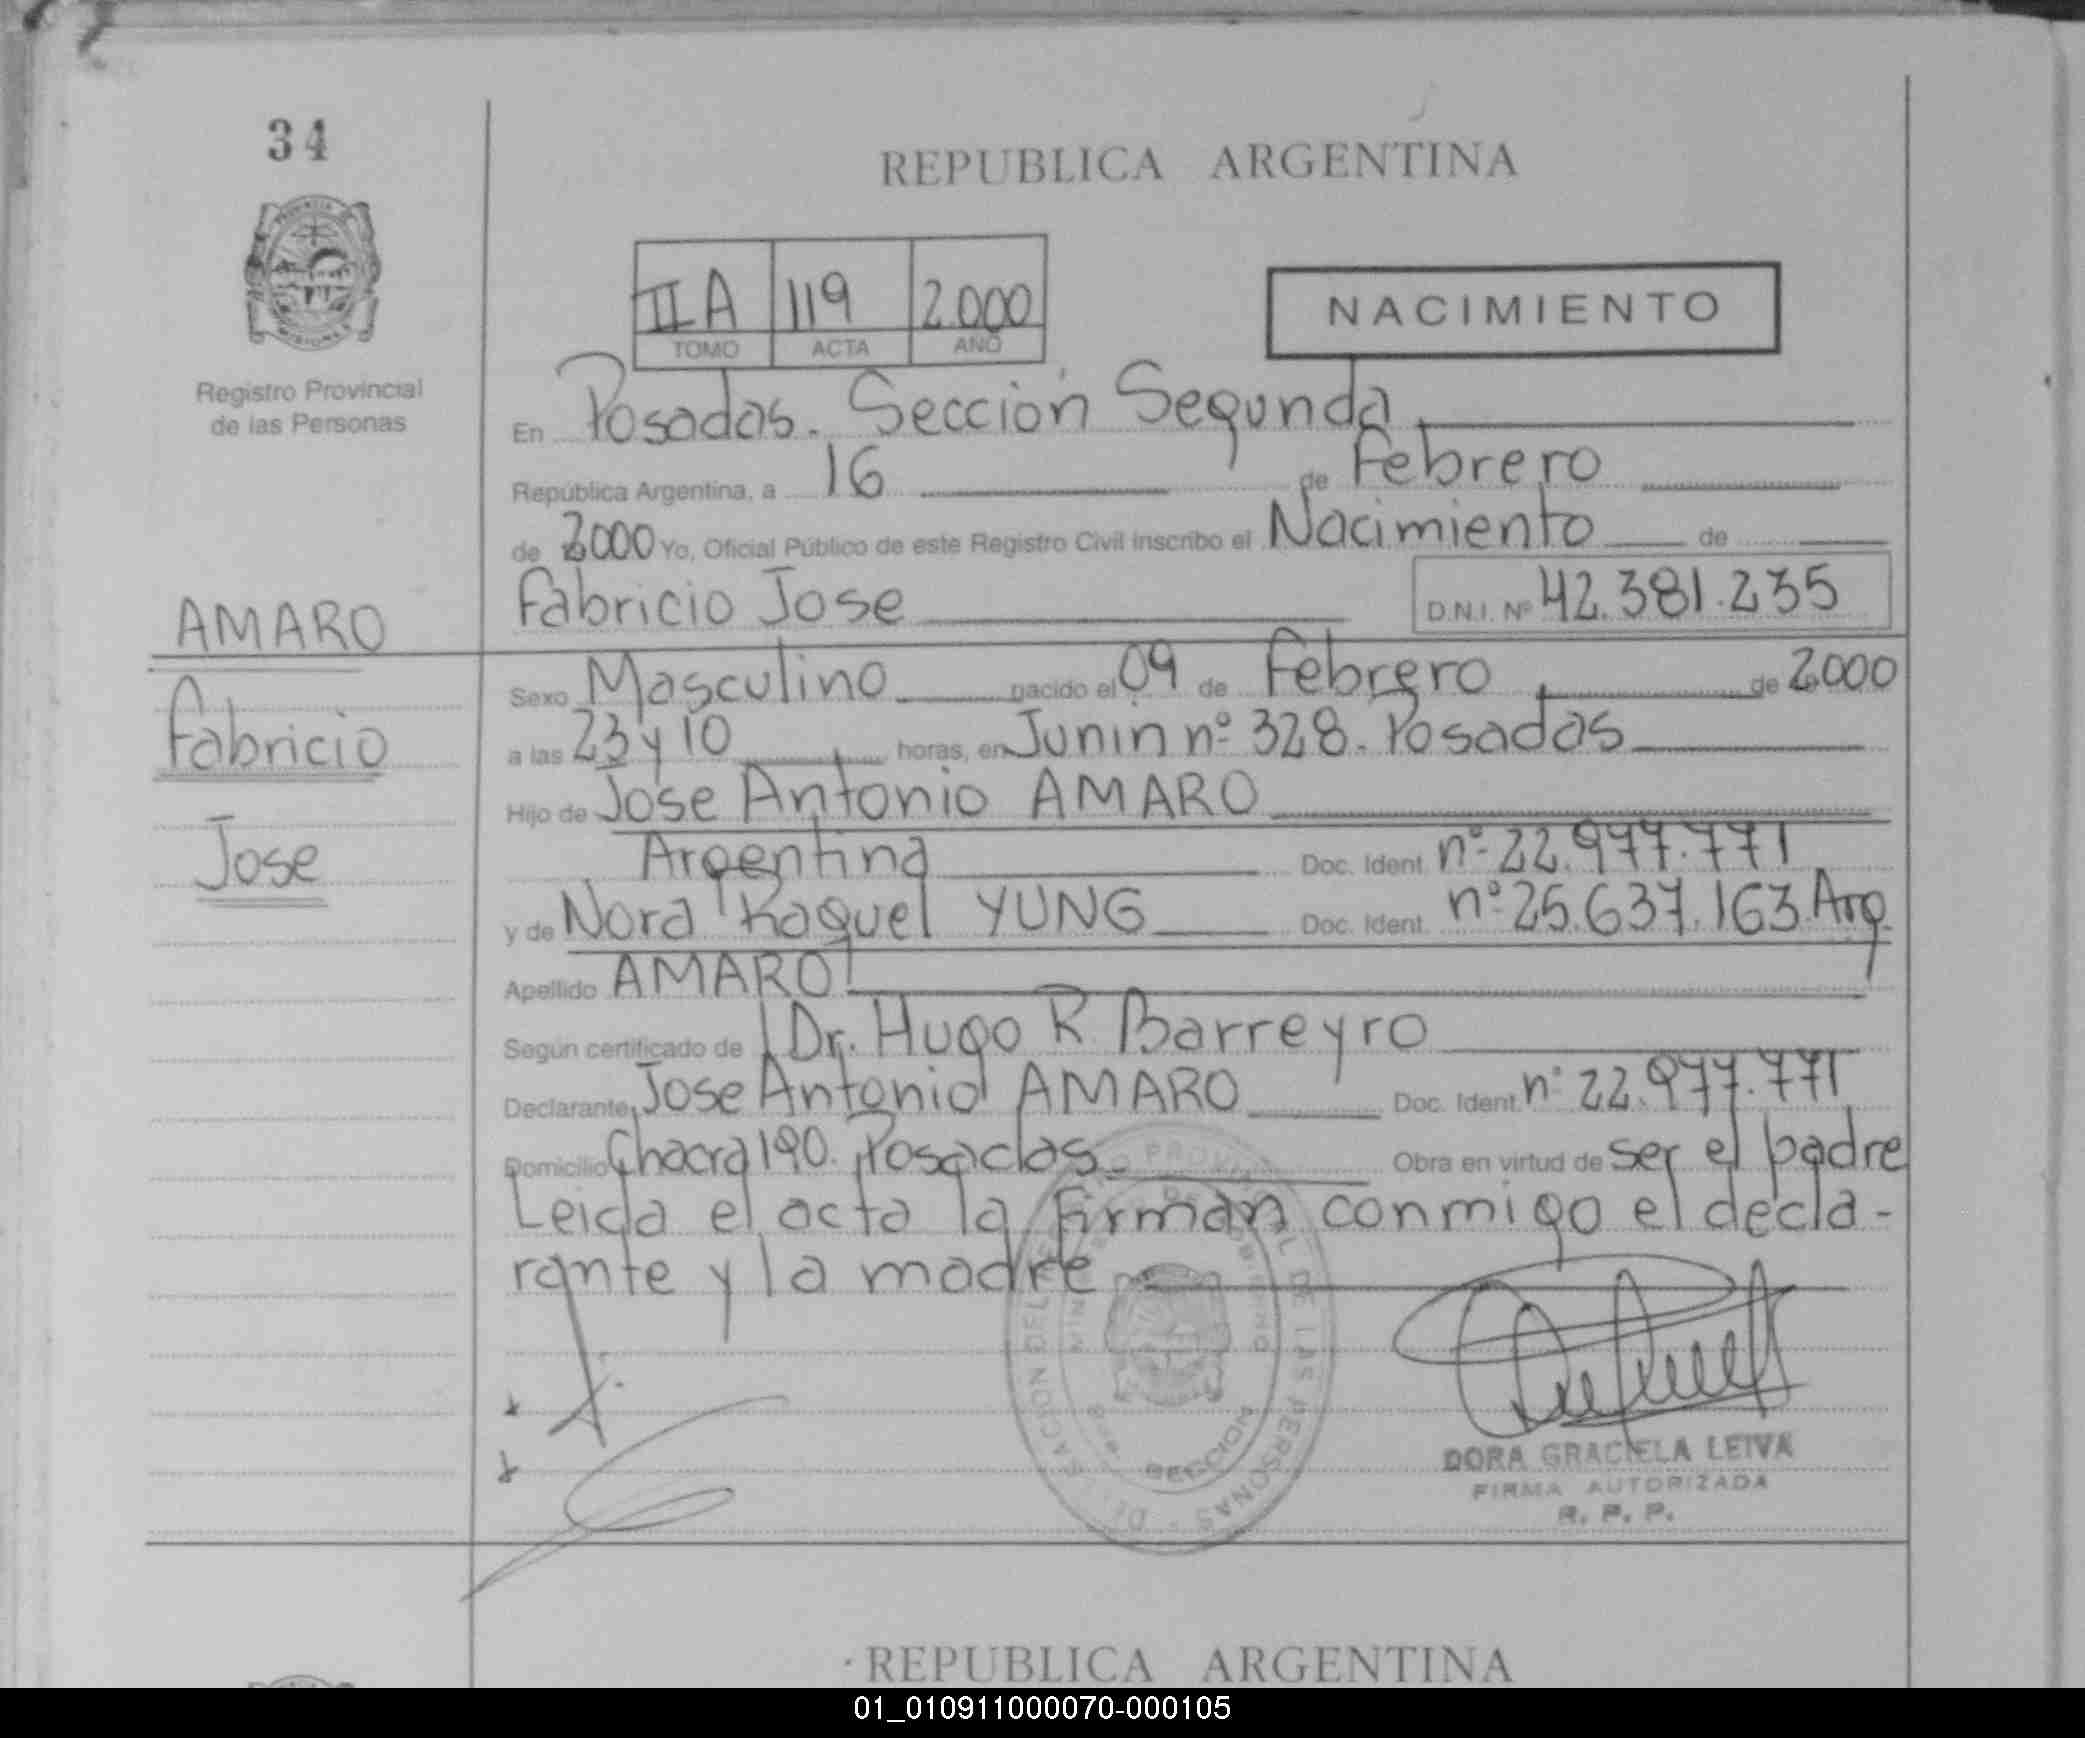 34
REPUBLICA ARGENTINA
II A 119 2.000
TOMO ACTA AÑO
NACIMIENTO
Registro Provincial
de las Personas
En Posadas. Sección Segunda
República Argentina, a 16 de Febrero
de 2000 Yo, Oficial Público de este Registro Civil inscribo el Nacimiento de
Fabricio Jose D.N.I. Nº 42.381.235
AMARO
Fabricio
Jose
Sexo Masculino nacido el 09 de Febrero de 2000
a las 23 y 10 horas, en Junin nº 328. Posadas
Hijo de Jose Antonio AMARO
Argentina Doc. Ident. nº 22.977.771
y de Nora Raquel YUNG Doc. Ident. nº 25.637.163. Arg.
Apellido AMARO
Según certificado de Dr. Hugo R. Barreyro
Declarante Jose Antonio AMARO Doc. Ident. nº 22.977.771
Domicilio Chacra 190. Posadas Obra en virtud de ser el padre
Leida el acta la firman conmigo el decla-
rante y la madre
DORA GRACIELA LEIVA
FIRMA AUTORIZADA
R. P. P.
REPUBLICA ARGENTINA
01_010911000070-000105